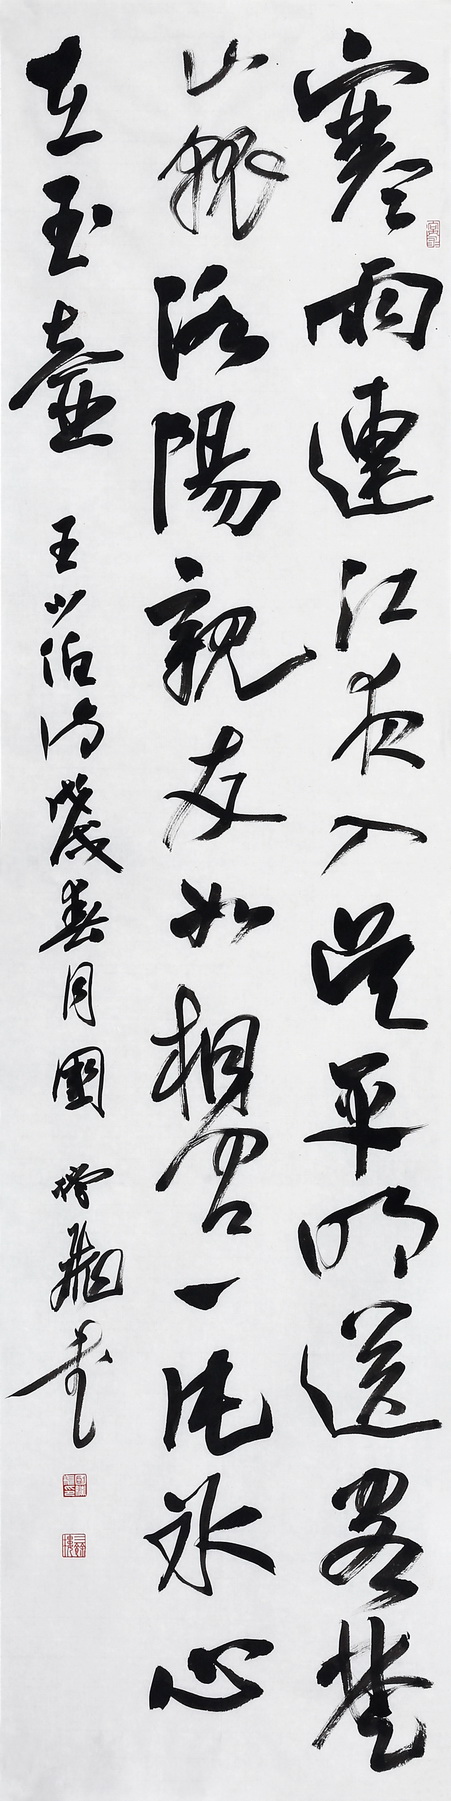 寒雨連江夜入吴平明送客楚
山孤洛陽親友如相問一片冰心
在玉壺 王少伯詩春月書